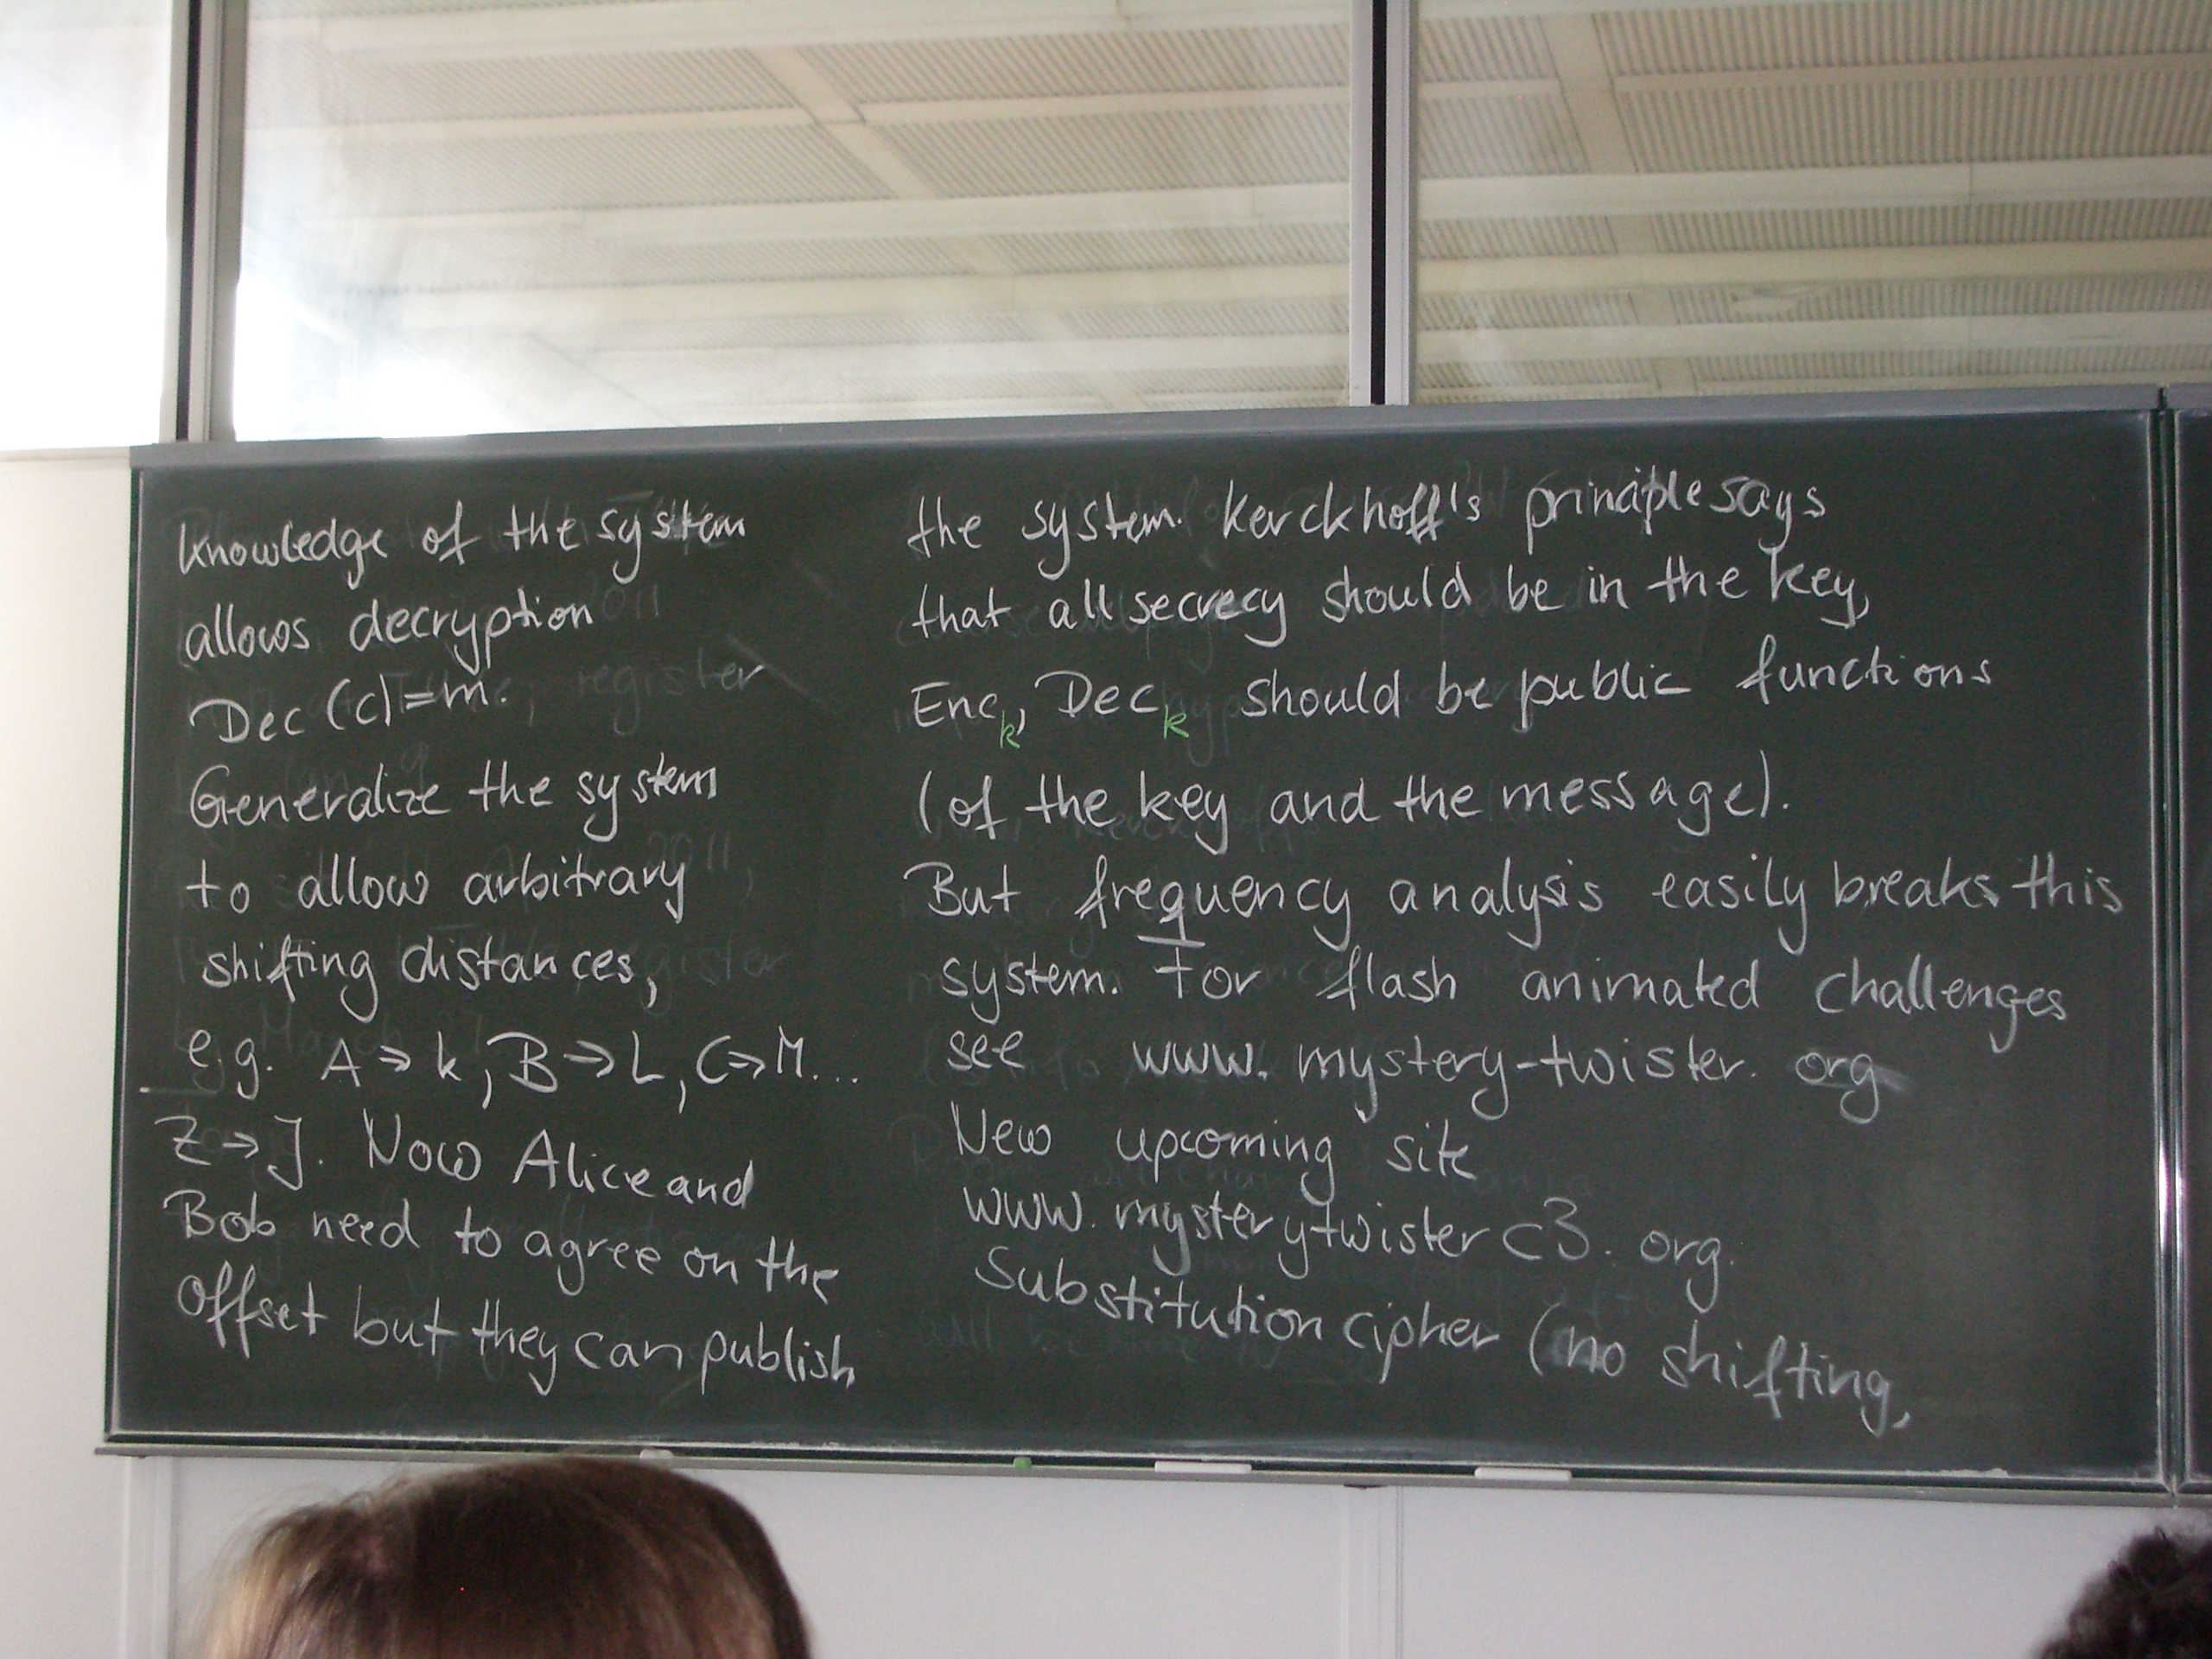 knowledge of the system
allows decryption
Dec (c)=m.
Generalize the system
to allow arbitrary
shifting distances,
e.g. A → K, B → L, C → M...
Z → J. Now Alice and
Bob need to agree on the
offset but they can publish
the system. Kerckhoff's principle says
that all secrecy should be in the key,
Enc_k, Dec_k should be public functions
(of the key and the message).
But frequency analysis easily breaks this
system. For flash animated challenges
see www.mystery-twister.org
New upcoming site
www.mysterytwisterc3.org.
Substitution cipher (no shifting,